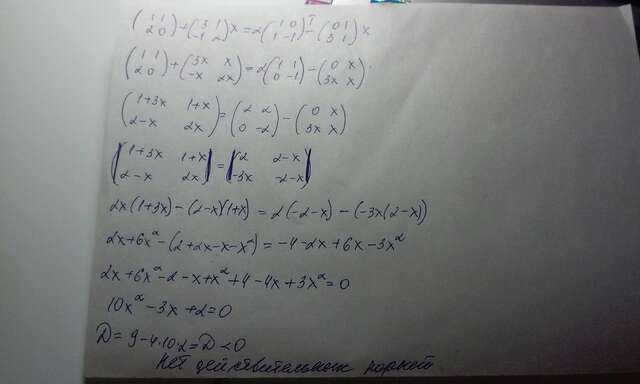 (1 1 2 0) + (3 1 -1 2) x = 2 (1 0 1 -1)ᵀ - (0 1 3 1) x
(1 1 2 0) + (3x x -x 2x) = 2 (1 1 0 -1) - (0 x 3x x).
(1+3x 1+x 2-x 2x) = (2 2 0 -2) - (0 x 3x x)
|1+3x 1+x 2-x 2x| = |2 2-x -3x -2-x|
2x(1+3x)-(2-x)(1+x) = 2(-2-x)-(-3x(2-x))
2x+6x²-(2+2x-x-x²)=-4-2x+6x-3x²
2x+6x²-2-x+x²+4-4x+3x²=0
10x²-3x+2=0
D= 9-4·10·2= D<0
Нет действительных корней